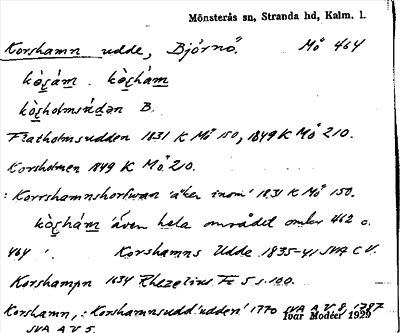 Mönsterås sn, Stranda hd, Kalm. l.
Korshamn udde, Björnö. Mö 464
kòʂám . kòʂhám
kòʂholmsúdən B.
Flatholmsudden 1831 K Mö 150, 1849 K Mö 210.
Korsholmen 1849 K Mö 210.
: Korrshamnshorfvan 'åker inom' 1831 K Mö 150.
kòʂhám 'även hela området under 462 o.
464'. Korshamns Udde 1835-41 SVA C V.
Korshampn 1634 Rhezelius Fc 5 s. 100.
Korshamn, : Korshamnsudd 'udden' 1770 SVA A V 8, 1787
SVA A V 5.
Ivar Modéer 1929